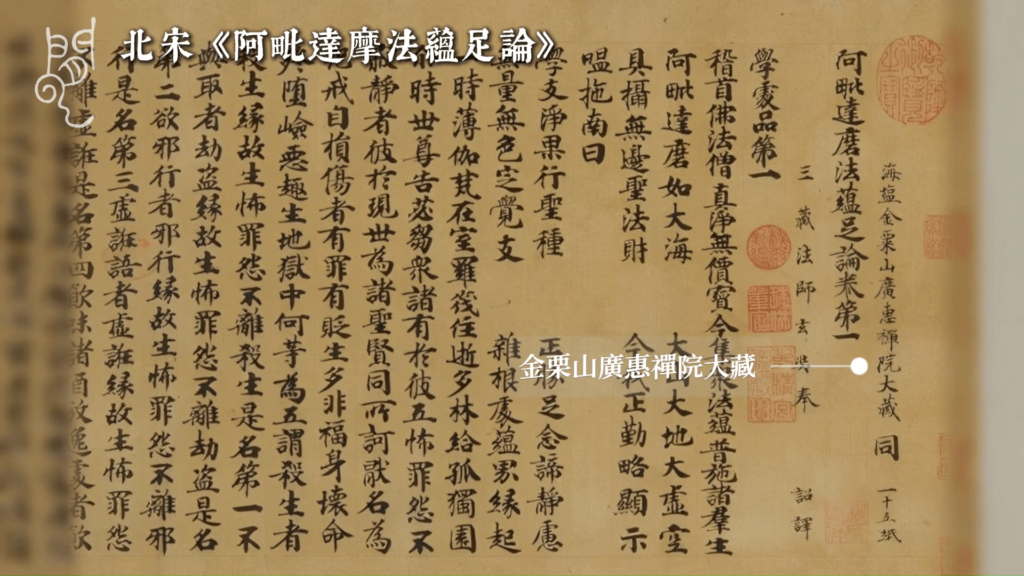 北宋《阿毗達摩法蘊足論》
金栗山廣惠禪院大藏
海塩金粟山廣惠禪院大藏 同 一十五紙
阿毗達磨法蘊足論卷第一
三藏法師玄奘奉 詔譯
學處品第一
稽首佛法僧真淨無價寶今集法蘊普施諸羣生
阿毗達磨如大海 大大地大虛空
具攝無邊聖法財 今正勤略顯示
嗢拖南曰
學支淨果行聖種 正足念諦靜慮
無量無色定覺支 雜根處蘊界緣起
時薄伽梵在室羅筏住逝多林給孤獨園
時世尊告苾芻衆諸有於彼五怖罪怨不
靜者彼於現世為諸聖賢同所訶厭名為
戒自損傷者有罪有貶生多非福身壞命
墮嶮惡趣生地獄中何等為五謂殺生者
殺生緣故生怖罪怨不離殺生是名第一不
與取者劫盜緣故生怖罪怨不離劫盜是名
第二欲邪行者邪行緣故生怖罪怨不離邪
行是名第三虛誑語者虛誑緣故生怖罪怨
離虛誑是名第四飲味諸酒放逸處者飲